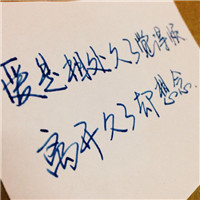 爱是相处久了觉得腻
离开久了却想念.